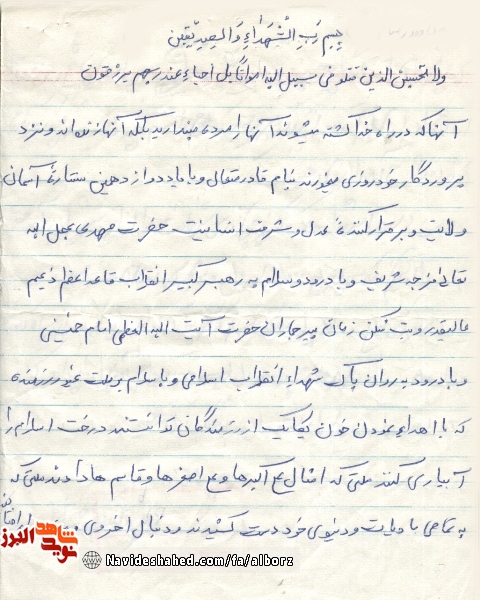 بسم رب الشهداء والصدیقین
ولا تحسبن الذین قتلو فی سبیل الله امواتاً بل احیاء عند ربهم یرزقون
آنهاکه در راه خدا کشته میشوند آنها را مرده مپندارید بلکه آنها زنده اند و نزد
پروردگار خود روزی میخورند بنام قادر متعال و با یاد دوازدهمین ستارۀ آسمان
ولایت و برقرار کنندۀ عدل و شرف انسانیت حضرت مهدی عجل الله
تعالی فرجه شریف و با درود و سلام به رهبر کبیر انقلاب قاعد اعظم زعیم
عالیقدر و بت شکن زمان پیر جماران حضرت آیت الله العظمی امام خمینی
و با درود به روان پاک شهداء انقلاب اسلامی و با سلام بر ملت
که با اهداء نمودن خون یکایک از رزمندگان توانستند درخت اسلام را
آبیاری کنند ملتی که امثال علی اکبرها و علی اصغرها و قاسم ها دادند ملتی که
به تمامی مادیات و دنیوی خود دست کشیدند و دنبال اخروی
نوید شاهد البرز
Navideshahed.com/fa/alborz